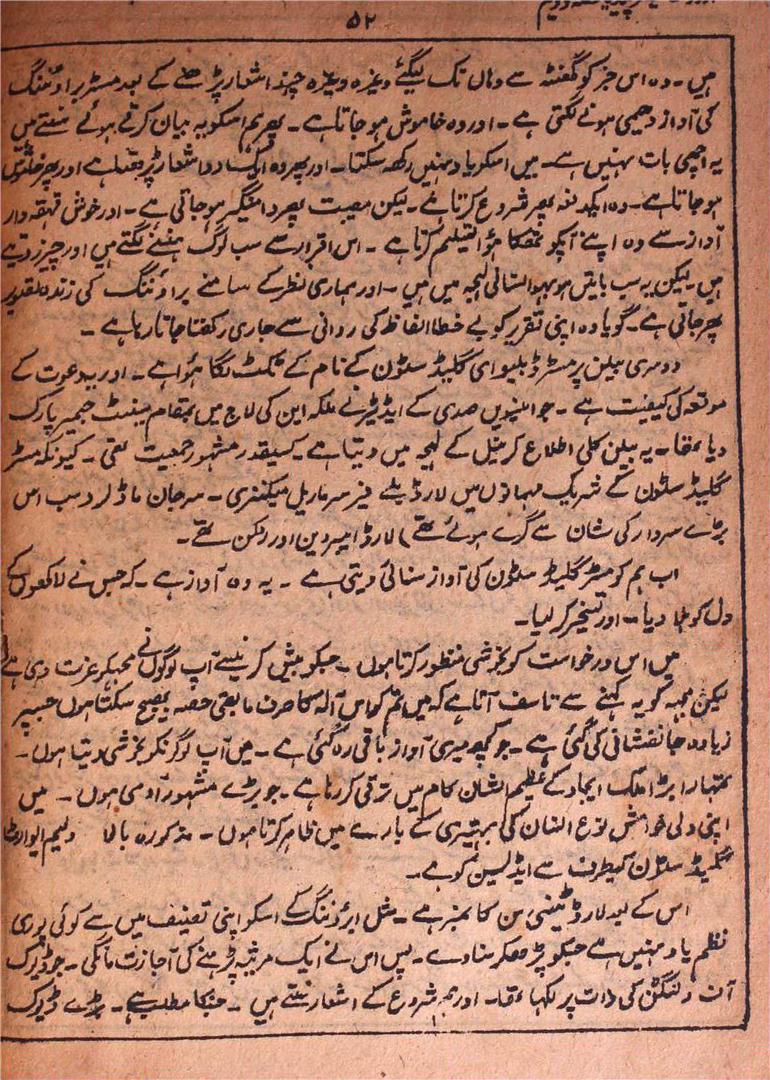 ۵۲
ہیں۔ وہ اس خبر کو گھنٹہ سے وہاں تک لیگئے وغیرہ وغیرہ چند اشعار پڑھنے کے بعد مسٹر براؤننگ
کی آواز دھیمی ہونے لگتی ہے۔ اور وہ خاموش ہو جاتا ہے۔ پھر ہم اسکو یہ بیان کرتے ہوئے سنتے ہیں
یہ اچھی بات نہیں ہے۔ میں اسکو یاد نہیں رکھ سکتا۔ اور پھر وہ ایک دو اشعار پڑھتا ہے اور پھر خاموش
ہو جاتا ہے۔ وہ ایکدفعہ پھر شروع کرتا ہے۔ لیکن مصیبت پھر دامنگیر ہو جاتی ہے۔ اور خوش قہقہہ دار
آواز سے وہ اپنے آپکو تھکا ہؤا تسلیم کرتا ہے۔ اس اقرار سے سب لوگ ہنسنے لگتے ہیں اور چیرز دیتے
ہیں لیکن یہ سب باتیں ہو بہو انسانی لہجہ میں ہیں۔ اور ہماری نظر کے سامنے براؤننگ کی زندہ تصویر
پھر جاتی ہے۔ گویا وہ اپنی تقریر کو بے خطا الفاظ کی روانی سے جاری رکھتا جاتا رہا ہے۔
دوسری بیلن پر مسٹر ڈبلیو ای گلیڈ سٹون کے نام کے ٹکٹ لگا ہؤا ہے۔ اور یہ دعوت کے
موقعہ کی کیفیت ہے۔ جو انیسویں صدی کے ایڈیٹر نے ملکہ این کی لاج میں بمقام سینٹ جیمز پارک
دیا تھا۔ یہ بیلن کلی اطلاع کرنیل کے لہجہ میں دیتا ہے۔ کسیقدر مشہور جمعیت تھی۔ کیونکہ مسٹر
گلیڈ سٹون کے شریک مہمانوں میں لارڈ پلے فیر سر ماریل میکنزی۔ سر جان ماڈلر (جو سب اس
بڑے سردار کی شان سے گرے ہوئے تھے) لارڈ ایبرڈین اور دکن تھے۔
اب ہم کو مسٹر گلیڈ سٹون کی آواز سنائی دیتی ہے۔ یہ وہ آواز ہے۔ کہ جس نے لاکھوں کے
دل کو ہلا دیا۔ اور تسخیر کر لیا۔
میں اس درخواست کو بخوشی منظور کرتا ہوں۔ جسکو پیش کرنیسے آپ لوگوں نے مجھکو عزت دی ہے
لیکن مجھ کو یہ کہنے سے تاسف آتا ہے کہ میں تم کو اس آلہ کا صرف مابقی حصہ بھیج سکتا ہوں جسپر
زیادہ جانفشانی کی گئی ہے۔ جو کچھ میری آواز باقی رہ گئی ہے۔ میں آپ لوگونکو بخوشی دیتا ہوں۔
تمہارا بڑا ملک ایجاد کے عظیم الشان کام میں ترقی کر رہا ہے۔ جو بڑے مشہور آدمی ہوں۔ میں
اپنی دلی خواہش نوع انسان کی بہتری کے بارے میں ظاہر کرتا ہوں۔ مذکورہ بالا ولیم ایوارٹ
گلیڈ سٹون کیطرف سے ایڈیسن کو ہے۔
اس کے بعد لارڈ ٹینی سن کا نمبر ہے۔ مثل براؤننگ کے اسکو اپنی تصنیف میں سے کوئی پوری
نظم یاد نہیں ہے جسکو پڑھکر سنا دے۔ پس اس نے ایک مرثیہ پڑھنے کی اجازت مانگی۔ جو ڈیوک
آف ولنگٹن کی ذات پر لکھا تھا۔ اور ہم شروع کے اشعار سنتے ہیں۔ جنکا مطلب ہے۔ بڑے ڈیوک